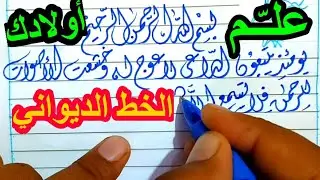 علّم
أولادك
بسم الله الرحمن الرحيم
يومئذ يتبعون الداعي لا عوج له وخشعت الأصوات
للرحمن فلا تسمع إلا
الخط الديواني